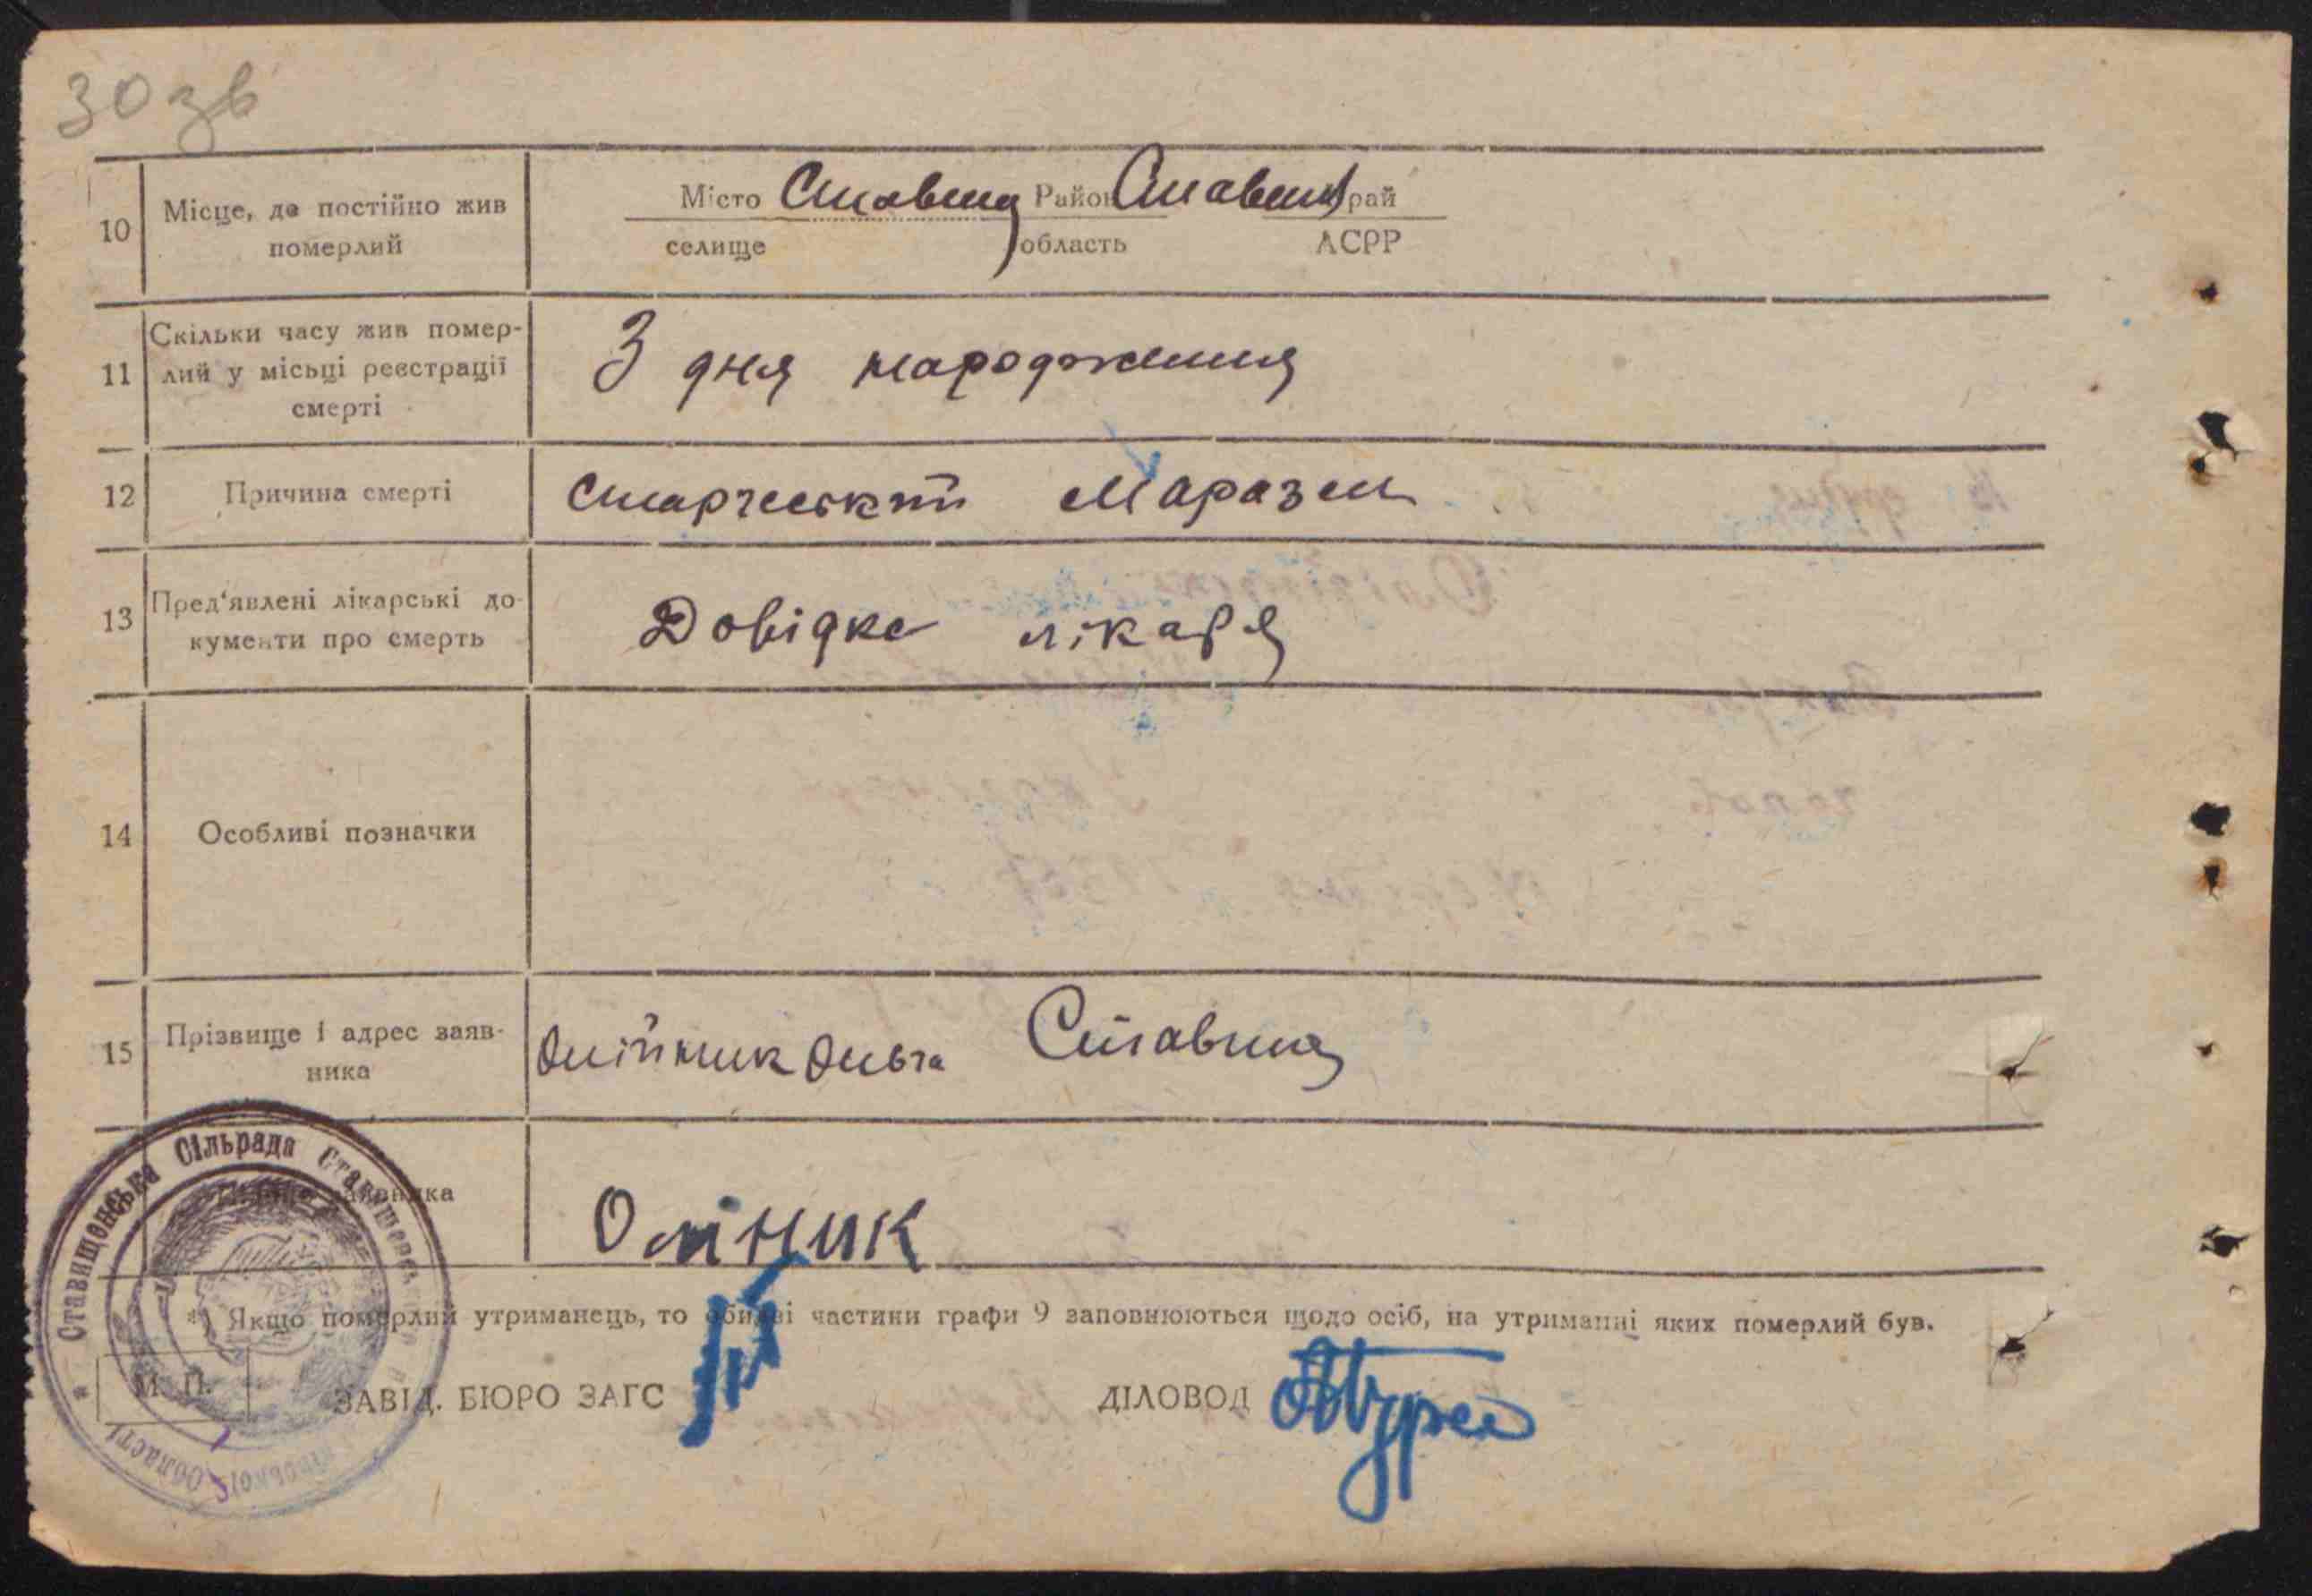 30 зв
10 Місце, де постійно жив померлий
Місто Ставища Район Ставищ край
селище область АСРР
11 Скільки часу жив помер-
лий у місьці реєстрації
смерті
З дня народження
12 Причина смерті Старческий Маразм
13 Пред'явлені лікарські до-
кументи про смерть
Довідка лікаря
14 Особливі позначки
15 Прізвище і адрес заяв-
ника
Олійник Ольга Ставища
Оліник
Ставищонська Сільрада
Області
*) Якщо померлий утриманець, то обидві частини графи 9 заповнюються щодо осіб, на утриманні яких померлий був.
М. П.
ЗАВІД. БЮРО ЗАГС ДІЛОВОД